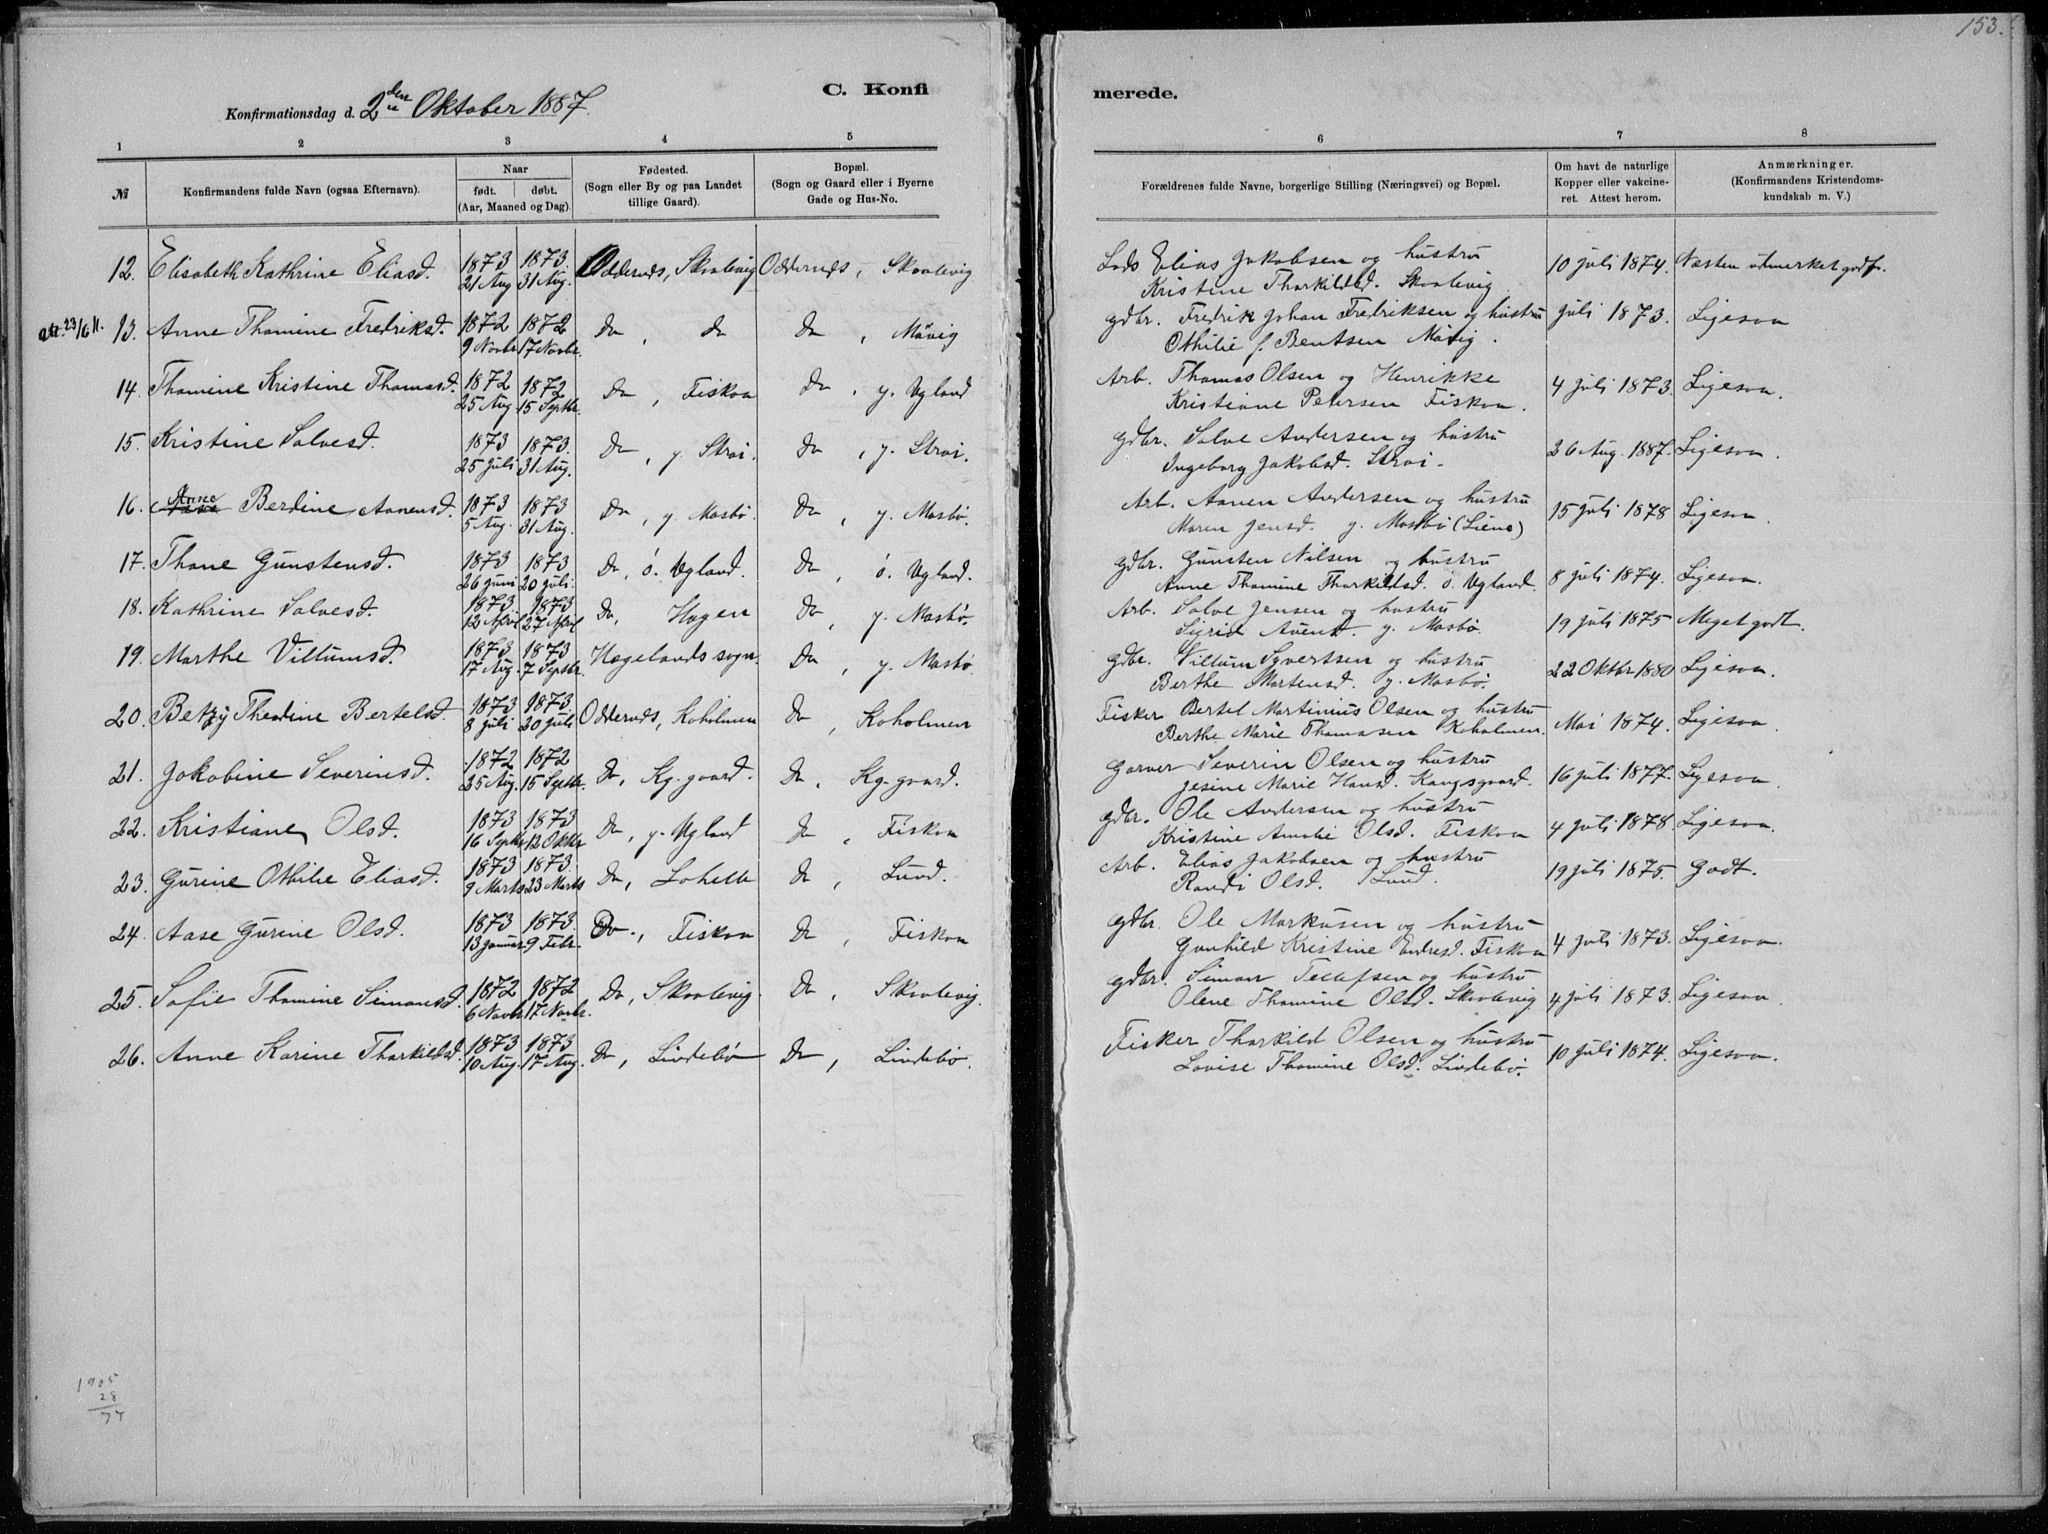 153.
C. Konfi merede.
Konfirmationsdag d. 2den Oktober 1887.
1 2 3 4 5 6 7 8
№ Konfirmandens fulde Navn (ogsaa Efternavn). Naar født. døbt. (Aar, Maaned og Dag). Fødested. (Sogn eller By og paa Landet tillige Gaard). Bopæl. (Sogn og Gaard eller i Byerne Gade og Hus-No. Forældrenes fulde Navne, borgerlige Stilling (Næringsvei) og Bopæl. Om havt de naturlige Kopper eller vakcineret. Attest herom. Anmærkninger. (Konfirmandens Kristendomskundskab m. V.)
12. Elisabeth Kathrine Eliasd. 1873 21 Aug 1873 31 Aug. Oddernds, Skaalevig Oddernds, Skaalevig Lods Elias Jakobsen og hustru 10 juli 1874. Næsten utmerket godt.
Kristine Tharkildsd. Skaalevig
att. 23/6 11. 13. Anne Thomine Fredriksd. 1872 9 Novbr 1872 17 Novbr. Do, do Do, Måvig gdbr. Fredrik Johan Fredriksen og hustru juli 1873. Ligesaa
Othilie f. Bentsen Måvig.
14. Thomine Kristine Thomasd. 1872 25 Aug 1872 15 Septbr. Do, Fiskaa Do, y. Vgland Arb. Thomas Olsen og Henrikke 4 juli 1873. Ligesaa.
Kristiane Petersen Fiskaa.
15. Kristine Salvesd. 1873 25 juli 1873. 31 Aug. Do, y. Strai. Do, y. Strai. gdbr. Salve Andersen og hustru 26 Aug. 1887. Ligesaa.
Ingeborg Jakobsd. Strai.
16. Anne Berdine Aanensd. 1873 5 Aug. 1873 31 Aug. Do, y. Mosbø. Do, y. Mosbø. Arb. Aanen Andersen og hustru 15 juli 1878 Ligesaa.
Maren Jensd. y. Mosbø (Liene)
17. Thone Gunstensd. 1873 26 juni 1873 20 juli. Do, ö. Vgland. Do, ö. Vgland. gdbr. Gunsten Nilsen og hustru 8 juli 1874. Ligesaa.
Anne Thomine Tharkildsd. ö. Vgland.
18. Kathrine Salvesd. 1873 12 April 1873. 27 April Do, Hagen Do, y. Mosbø. Arb. Salve Jensen og hustru 19 juli 1875 Meget godt.
Sigrid Auensd. y. Mosbø.
19. Marthe Viltumsd. 1873 17 Aug. 1873 7 Septbr. Hægelands sogn. Do, y. Mosbø. gdbr. Viltum Syvertsen og hustru 22 Oktbr 1880 Ligesaa.
Berthe Mortensd. y. Mosbø.
20. Betzy Theodine Bertelsd. 1873 8 juli 1873. 20 juli Oddernds, Koholmen Do, Koholmen Fisker Bertel Martinius Olsen og hustru Mai 1874. Ligesaa.
Berthe Marie Thomasen Koholmen.
21. Jakobine Severinsd. 1872 25 Aug. 1872 15 Septbr. Do, Kg. gaard. Do, Kg. gaard. Garver Severin Olsen og hustru 16 juli 1877. Ligesaa.
Jesine Marie Hansd. Kongsgaard.
22. Kristiane Olsd. 1873 16 Septbr 1873 12 Oktbr Do, y. Vgland Do, Fiskaa gdbr. Ole Andersen og hustru 4 juli 1878. Ligesaa.
Kristine Amalie Olsd. Fiskaa
23. Gurine Othilie Eliasd. 1873 9 Marts 1873. 23 Marts Do, Lohelle Do, Lund. Arb. Elias Jakobsen og hustru 19 juli 1875. Godt.
Randi Olsd. Lund.
24. Aase Gurine Olsd. 1873 13 januar 1873. 9 Febr. Do., Fiskaa Do, Fiskaa gdbr. Ole Markusen og hustru 4 juli 1873. Ligesaa.
Gunhild Kristine Endresd. Fiskaa
25. Sofie Thomine Simonsd. 1872 6 Novbr 1872 17 Novbr. Do, Skaalevig. Do, Skaalevig. gdbr. Simon Tellefsen og hustru 4 juli 1873. Ligesaa.
Olene Thomine Olsd. Skaalevig
26. Anne Karine Tharkildsd. 1873 10 Aug. 1873 17 Aug. Do, Lindebø Do, Lindebø. Fisker Tharkild Olsen og hustru 10 juli 1874. Ligesaa.
Lovise Thomine Olsd. Lindebø.
1905
28
77